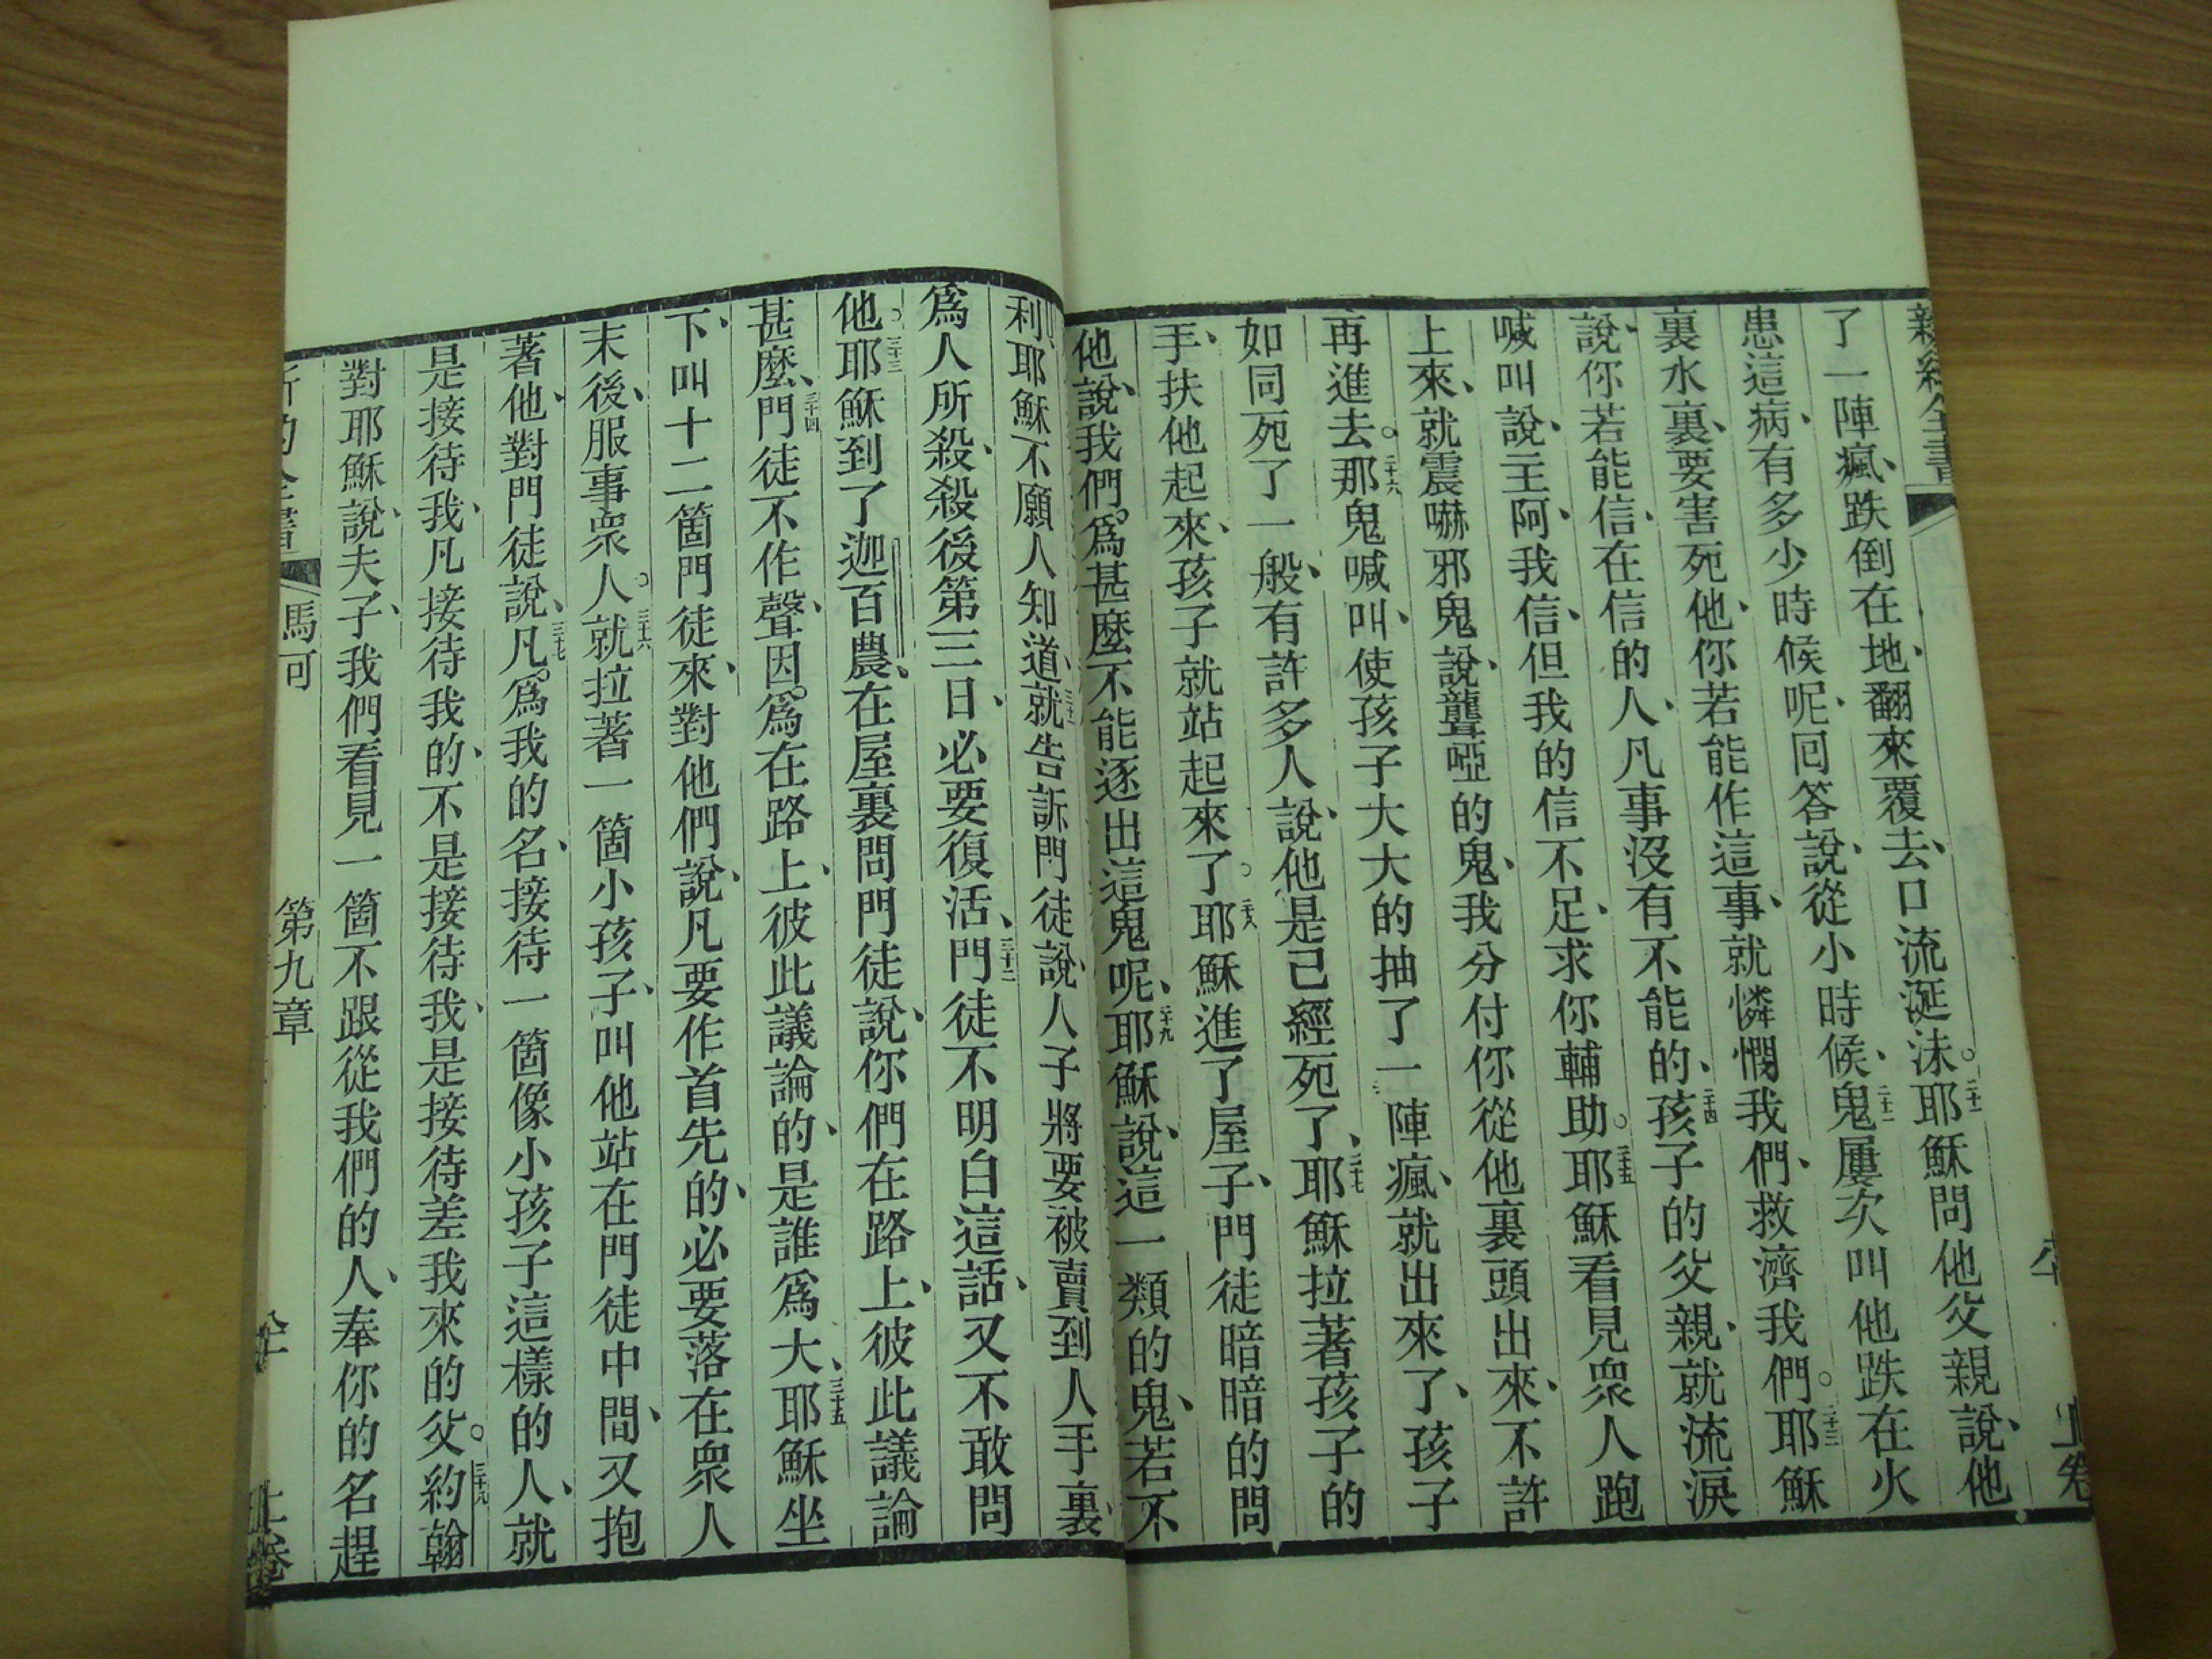 新約全書
上卷
了一陣瘋、跌倒在地、翻來覆去、口流涎沫。二十一耶穌問他父親說、他
患這病、有多少時候呢、回答說、從小時候、二十二鬼屢次叫他跌在火
裏水裏、要害死他、你若能作這事、就憐憫我們、救濟我們。二十三耶穌
說、你若能信、在信的人、凡事沒有不能的、二十四孩子的父親、就流淚
喊叫說、主阿、我信、但我的信不足、求你輔助。二十五耶穌看見眾人跑
上來、就震嚇邪鬼說、聾啞的鬼、我分付你從他裏頭出來、不許
再進去。二十六那鬼喊叫、使孩子大大的抽了一陣瘋、就出來了、孩子
如同死了一般、有許多人說、他是已經死了、二十七耶穌拉著孩子的
手、扶他起來、孩子就站起來了。二十八耶穌進了屋子、門徒暗暗的問
他說、我們爲甚麼不能逐出這鬼呢、二十九耶穌說、這一類的鬼、若不
利、耶穌不願人知道、三十一就告訴門徒說、人子將要被賣到人手裏、
爲人所殺、殺後第三日、必要復活、三十二門徒不明白這話、又不敢問
他。三十三耶穌到了迦百農、在屋裏問門徒說、你們在路上、彼此議論
甚麼、三十四門徒不作聲、因爲在路上、彼此議論的、是誰爲大、三十五耶穌坐
下、叫十二箇門徒來、對他們說、凡要作首先的、必要落在眾人
末後、服事眾人。三十六就拉著一箇小孩子、叫他站在門徒中間、又抱
著他、對門徒說、三十七凡爲我的名、接待一箇像小孩子這樣的人、就
是接待我、凡接待我的、不是接待我、是接待差我來的父。三十八約翰
對耶穌說、夫子、我們看見一箇不跟從我們的人、奉你的名趕
新約全書
馬可
第九章
上卷